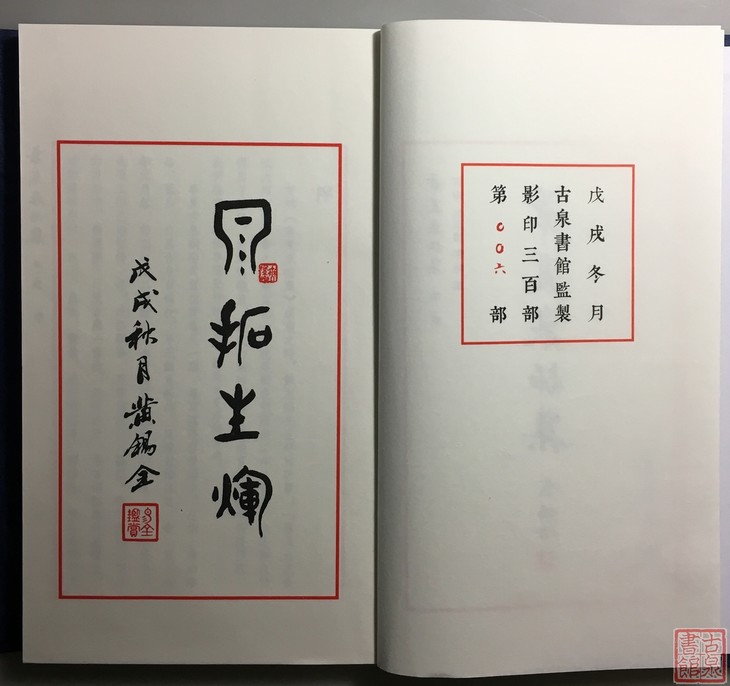 戊戌冬月
古泉書館監製
影印三百部
第〇〇六部
泉拓生煇
戊戌秋月黃錫全
古泉書館